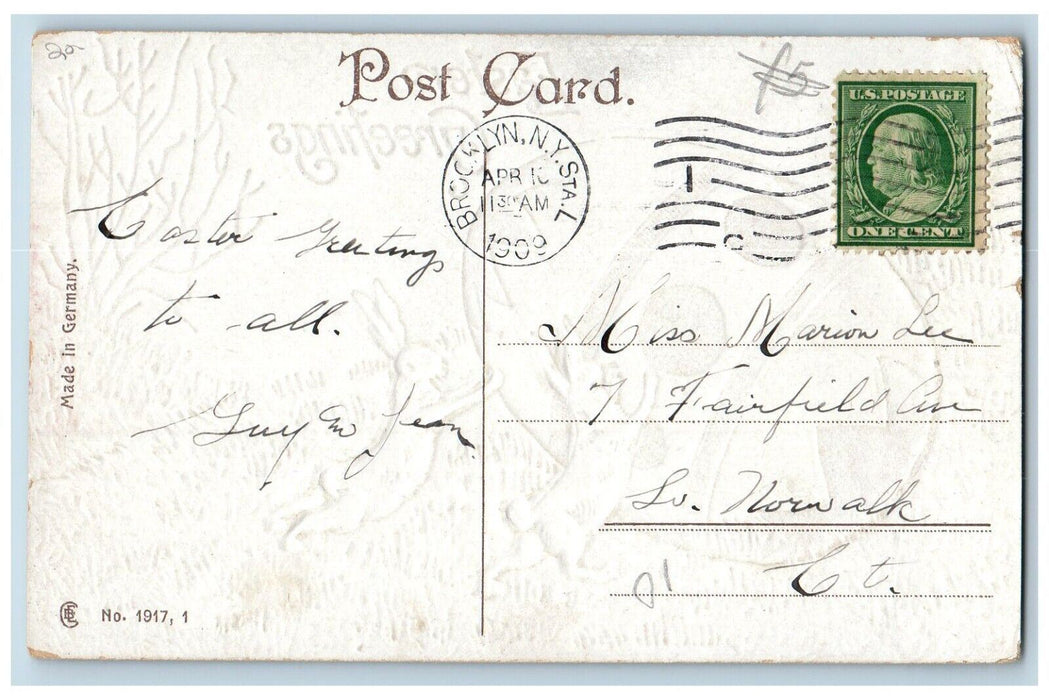 Post Card.
BROOKLYN, N.Y. STA. L
APR 10
11 30 AM
1909
U.S. POSTAGE
ONE CENT
Easter Greetings
to all.
Guy
Jean
Miss Marion Lee
7 Fairfield Ave
So. Norwalk
Ct.
Made in Germany.
No. 1917, 1